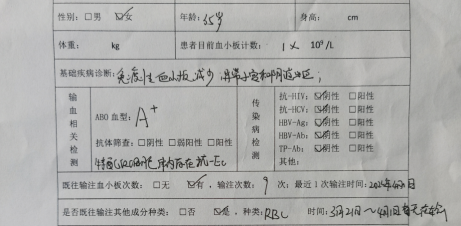 性别：□男 ☑女 年龄：35岁 身高： cm
体重： kg 患者目前血小板计数：1 × 10⁹/L
基础疾病诊断：免疫性血小板减少
输血相关检测
ABO血型：A+
抗体筛查：□阴性 □弱阳性 □阳性
传染病检测
抗-HIV：☑阴性 □阳性
抗-HCV：☑阴性 □阳性
HBV-Ag：☑阴性 □阳性
HBV-Ab：☑阴性 □阳性
TP-Ab：☑阴性 □阳性
其他：
既往输注血小板次数：□无 ☑有，输注次数：9 次；最近1次输注时间：
是否既往输注其他成分种类：□否 ☑是，种类：RBC 时间：3月21日～4月1日